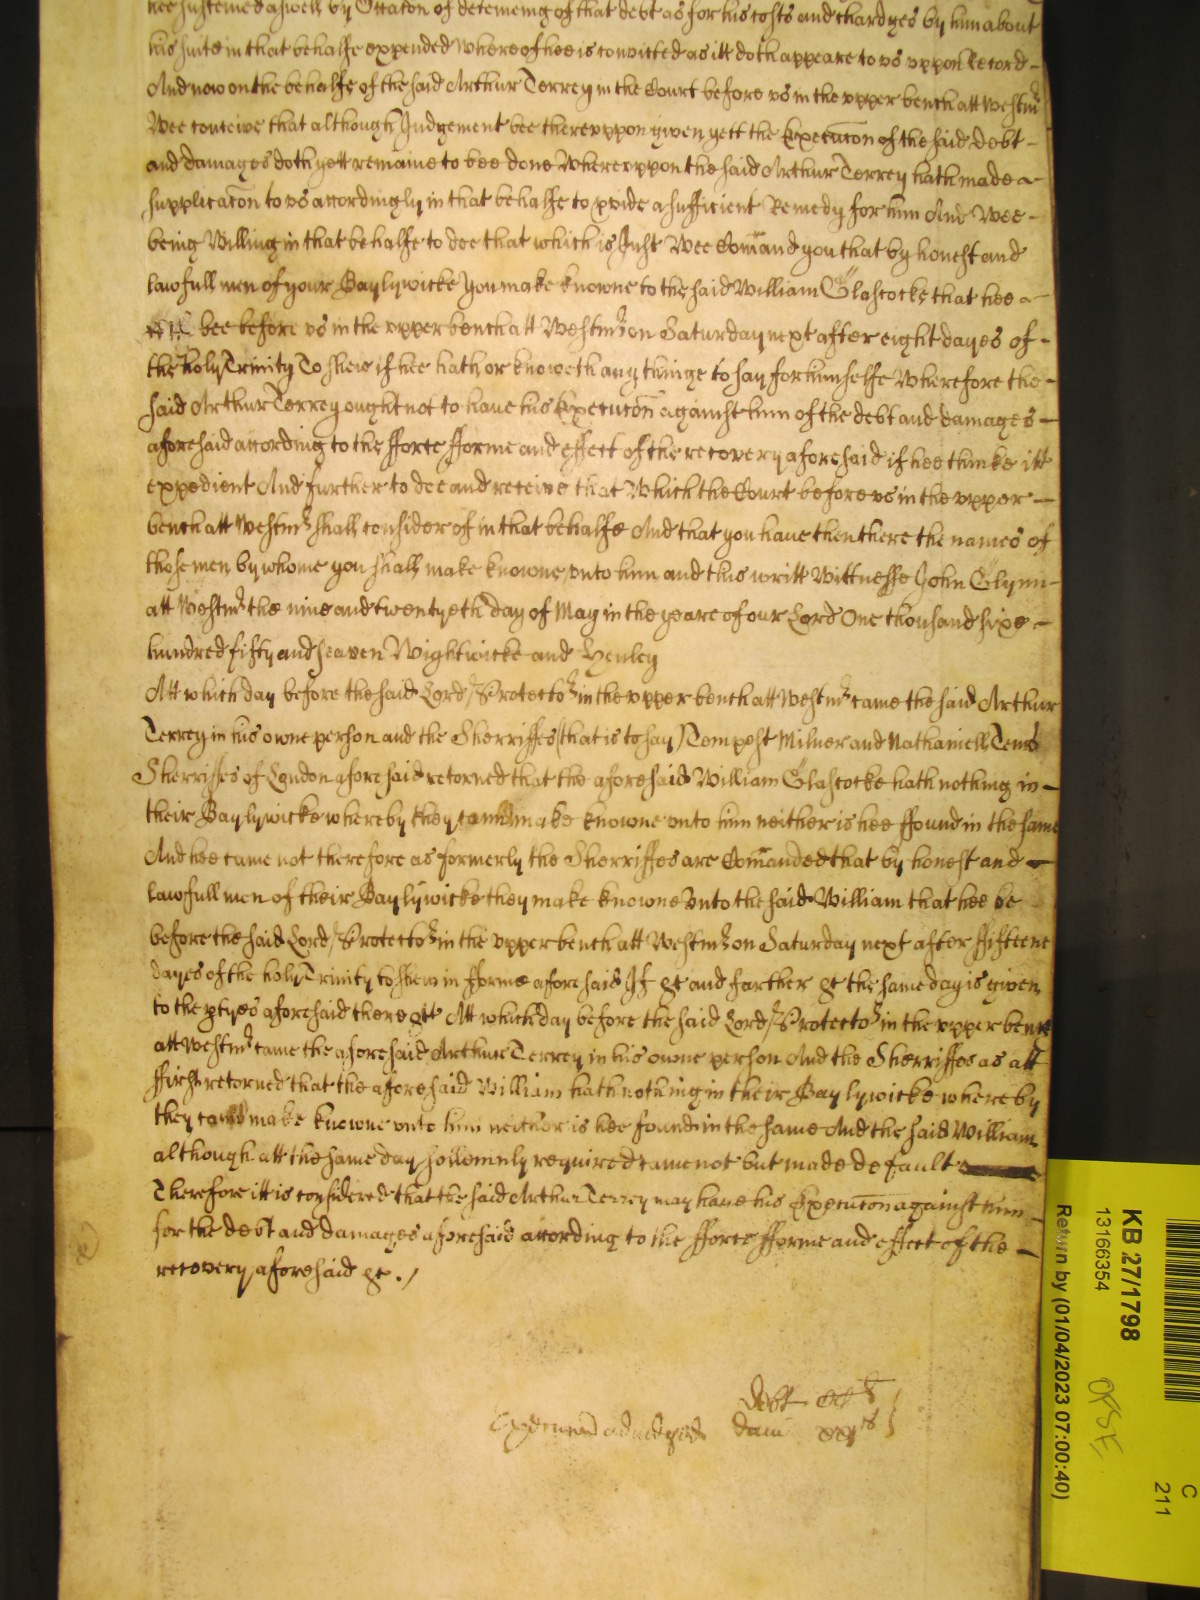 hee susteined aswell by Occacon of deteineing of that debt as for his costs and chardges by him about
his suite in that behalfe expended Whereof hee is convicted as itt doth appeare to vs vppon Record
And now on the behalfe of the said Arthur Terrey in the Court before vs in the vpper bench att Westmr
Wee conceive that although Judgement bee therevppon given yett the Execucon of the said debt
and damages doth yett remaine to bee done Wherevppon the said Arthur Terrey hath made a
supplicacon to vs accordingly in that behalfe to pvide a sufficient Remedy for him And Wee
being Willing in that behalfe to doe that which is Just Wee Comand you that by honest and
lawfull men of your Baylywicke you make knowne to the said William Glascocke that hee
bee before vs in the vpper bench att Westmr on Saturday next after eight dayes of
the holy Trinity To shew if hee hath or knoweth any thinge to say for himselfe Wherefore the
said Arthur Terrey ought not to haue his Execucon against him of the debt and damages
aforesaid according to the fforce fforme and effect of the recovery aforesaid if hee thinke itt
expedient And further to doe and receive that Which the Court before vs in the vpper
bench att Westmr shall consider of in that behalfe And that you haue then there the names of
those men by whome you shall make knowne vnto him and this writt Wittnesse John Glynn
att Westmr the nine and twentyeth day of May in the yeare of our Lord One thousand sixe
hundred fifty and seaven Wightwicke and Henley
Att which day before the said Lord Protector in the vpper bench att Westmr came the said Arthur
Terrey in his owne person and the Sherriffes (that is to say) Tempest Milner and Nathaniell Tems
Sherriffes of London aforesaid retorned that the aforesaid William Glascocke hath nothing in
their Baylywicke whereby they cann make knowne vnto him neither is hee ffound in the same
And hee came not therefore as formerly the Sherriffes are Comanded that by honest and
lawfull men of their Baylywicke they make knowne vnto the said William that hee be
before the said Lord Protector in the vpper bench att Westmr on Saturday next after ffifteene
dayes of the holy Trinity to shew in fforme aforesaid If &c and farther &c the same day is given
to the ptyes aforesaid there &c Att which day before the said Lord Protector in the vpper bench
att Westmr came the aforesaid Arthur Terrey in his owne person And the Sherriffes as att
ffirst retorned that the aforesaid William hath nothing in their Baylywicke whereby
they cann make knowne vnto him neither is hee found in the same And the said William
although att the same day sollemnly required came not but made default
Therefore itt is considered that the said Arthur Terrey may haue his Execucon against him
for the debt and damages aforesaid according to the fforce fforme and effect of the
recovery aforesaid &c.
Debt
dam
KB 27/1798
13166354
Return by (01/04/2023 07:00:40)
C
211